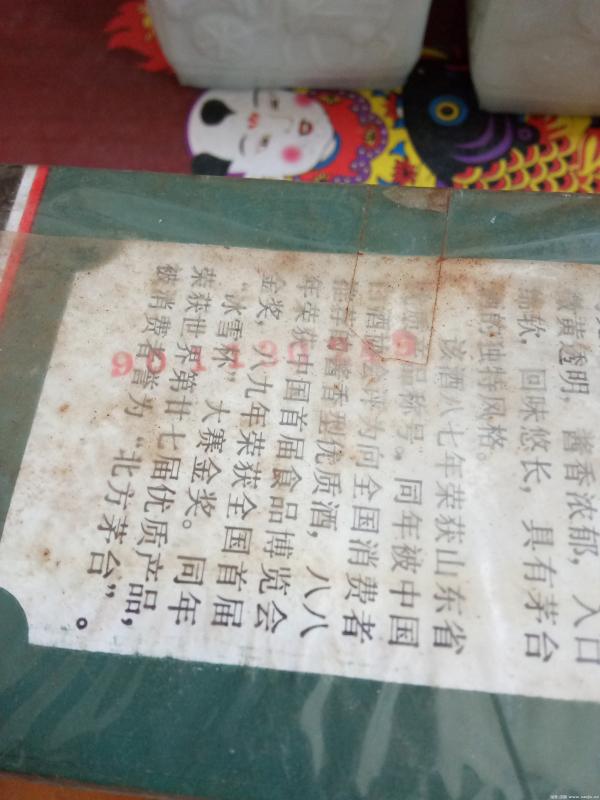 微黄透明，酱香浓郁，入口
绵软，回味悠长，具有茅台
的独特风格。
该酒八七年荣获山东省
品称号。同年被中国
酒协会评为向全国消费者
推荐的酱香型优质酒，八八
年荣获中国首届食品博览会
金奖，八九年荣获全国首届
“冰雪杯”大赛金奖。同年
荣获世界第廿七届优质产品，
被消费者誉为“北方茅台”。